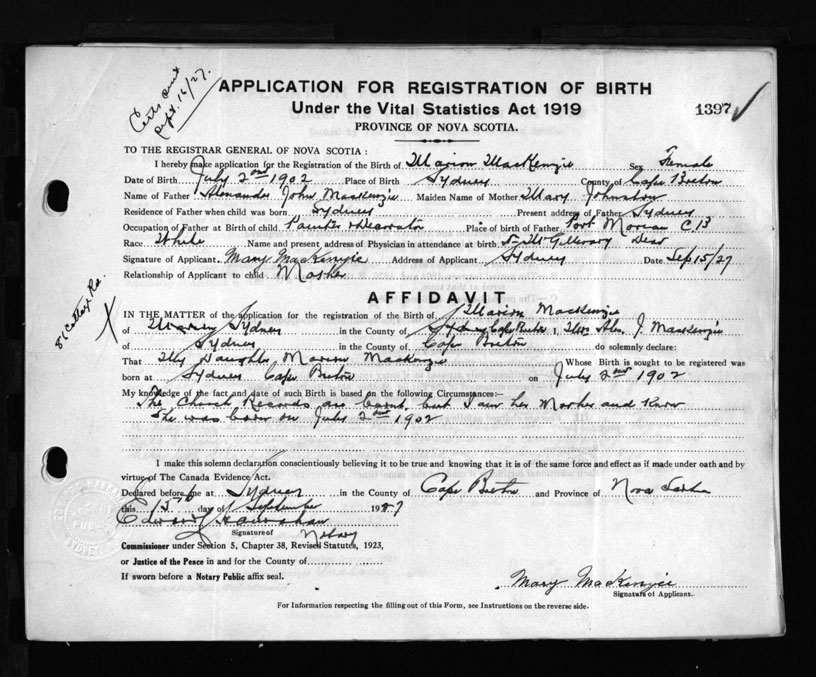 Certs sent
Sept. 16/27.
APPLICATION FOR REGISTRATION OF BIRTH
Under the Vital Statistics Act 1919
1397
PROVINCE OF NOVA SCOTIA.
TO THE REGISTRAR GENERAL OF NOVA SCOTIA :
I hereby make application for the Registration of the Birth of Marion MacKenzie Sex Female
Date of Birth July 2nd 1902 Place of Birth Sydney County of Cape Breton
Name of Father Alexander John MacKenzie Maiden Name of Mother Mary Johnston
Residence of Father when child was born Sydney Present address of Father Sydney
Occupation of Father at Birth of child Painter & Decorator Place of birth of Father Port Morien C B
Race White Name and present address of Physician in attendance at birth Dead
Signature of Applicant Mary MacKenzie Address of Applicant Sydney Date Sep 15/27
Relationship of Applicant to child Mother
86 Cottage Rd.
AFFIDAVIT
IN THE MATTER of the application for the registration of the Birth of Marion MacKenzie
of Sydney in the County of Sydney Cape Breton I, Mrs Alex. J. MacKenzie
of Sydney in the County of Cape Breton do solemnly declare:
That My Daughter Marion MacKenzie Whose Birth is sought to be registered was
born at Sydney Cape Breton on July 2nd 1902
My knowledge of the fact and date of such Birth is based on the following Circumstances:—
The Church Records are burnt, but I am her Mother and Know
She was born on July 2nd 1902
I make this solemn declaration conscientiously believing it to be true and knowing that it is of the same force and effect as if made under oath and by
virtue of The Canada Evidence Act.
Declared before me at Sydney in the County of Cape Breton and Province of Nova Scotia
this 15th day of September 1927
Edward Hanrahan
Signature of Notary
Commissioner under Section 5, Chapter 38, Revised Statutes, 1923,
or Justice of the Peace in and for the County of
If sworn before a Notary Public affix seal.
Mary MacKenzie
Signature of Applicant.
For Information respecting the filling out of this Form, see Instructions on the reverse side.